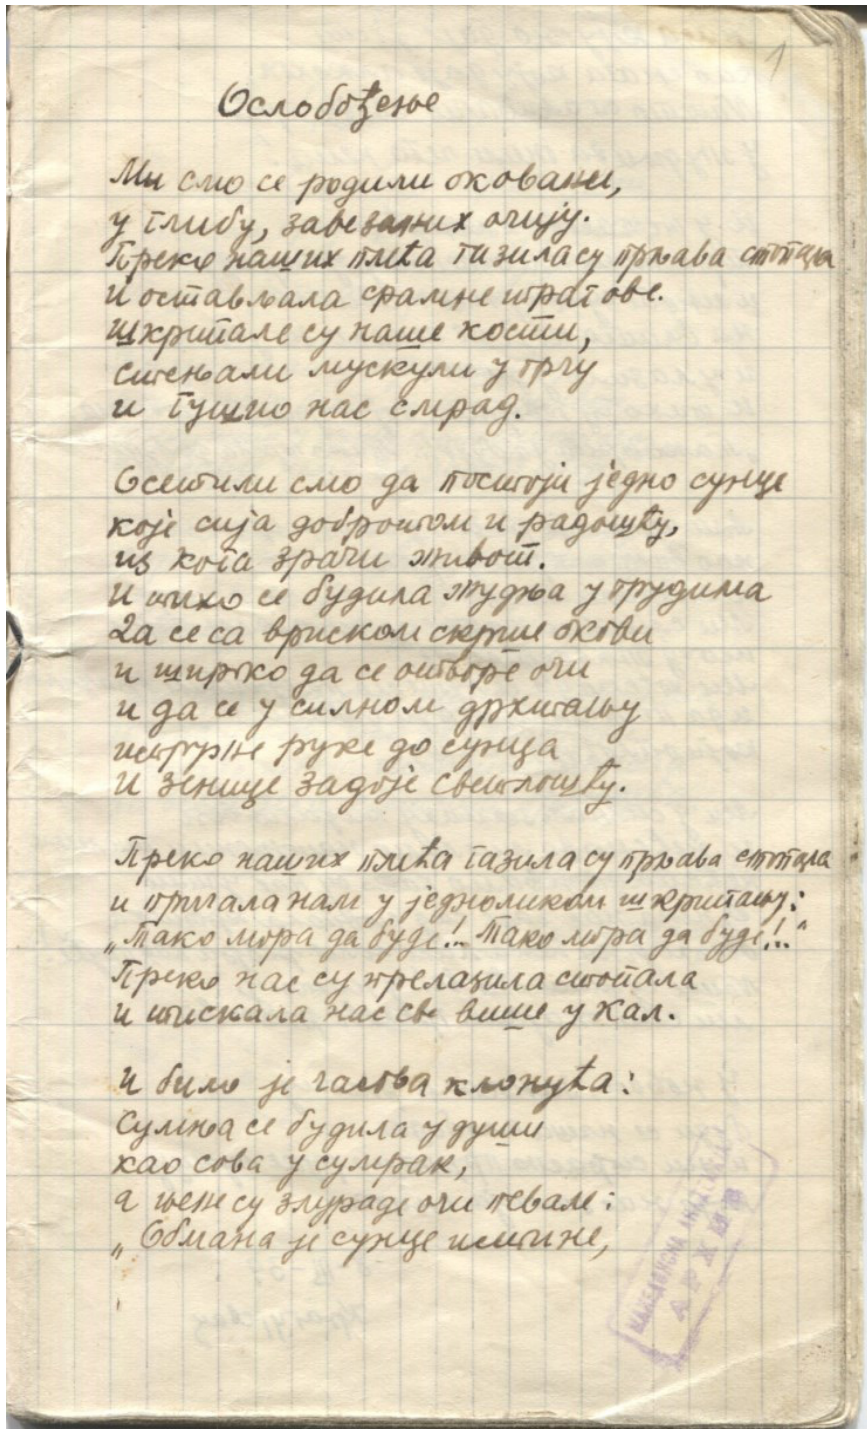 1
Ослобођење
Ми смо се родили оковани,
у глибу, завезаних очију.
Преко наших плећа газила су прљава стопала
и остављала срамне трагове.
Шкрипале су наше кости,
стењали мускули у грчу
и гушио нас смрад.
Осетили смо да постоји једно сунце
које сија добротом и радошћу,
из кога зрачи живот.
И тихо се будила жудња у грудима
Да се са вриском скрше окови
и широко да се отворе очи
и да се у силном дрхтању
истргне руке до сунца
И зенице задоје светлошћу.
Преко наших плећа газила су прљава стопала
и причала нам у једноликом шкрипању:
„Тако мора да буде!.. Тако мора да буде!.."
Преко нас су прелазила стопала
и тискала нас све више у кал.
И било је часова клонућа:
Сумња се будила у души
као сова у сумрак,
а њене су злураде очи певале:
„Обмана је сунце истине,
МАКЕДОНСКА
АРХИВ